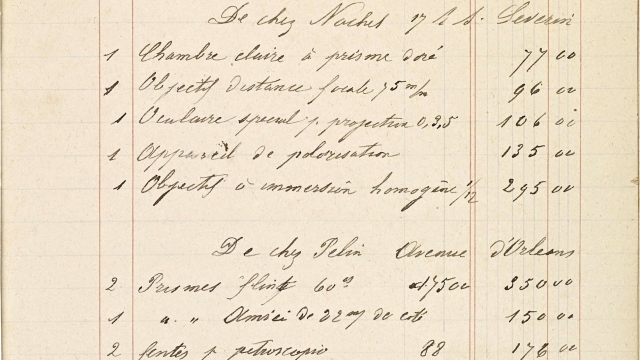 De chez Nachet 17 r S. Severin
1 Chambre claire à prisme doré 77 00
1 Objectif distance focale 75 m/m 96 00
1 Oculaire special p projection 0,95 106 00
1 Appareil de polarisation 135 00
1 Objectif à immersion homogène 1/12 295 00
De chez Pelin Avenue d'Orleans
2 Prismes flint 60° à 175 00 350 00
1 " " Amici de 22 m/m de coté 150 00
2 fentes p 88 176 00